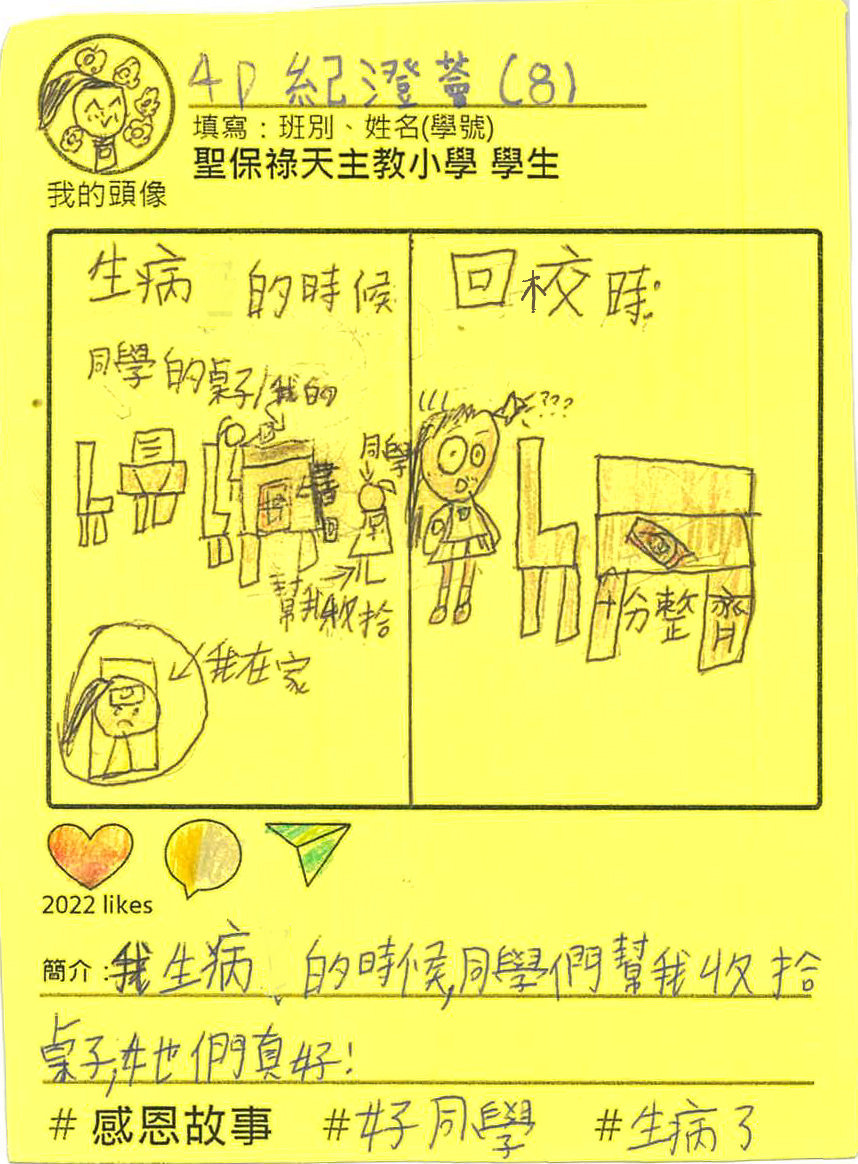 4D 紀澄薈(8)
填寫：班別、姓名(學號)
聖保祿天主教小學 學生
我的頭像
生病 的時候
同學的桌子/我的
同學
書
幫我收拾
我在家
回校時:
???
十分整齊
2022 likes
簡介：我生病 的時候,同學們幫我收拾
桌子,她們真好!
# 感恩故事 #好同學 #生病了